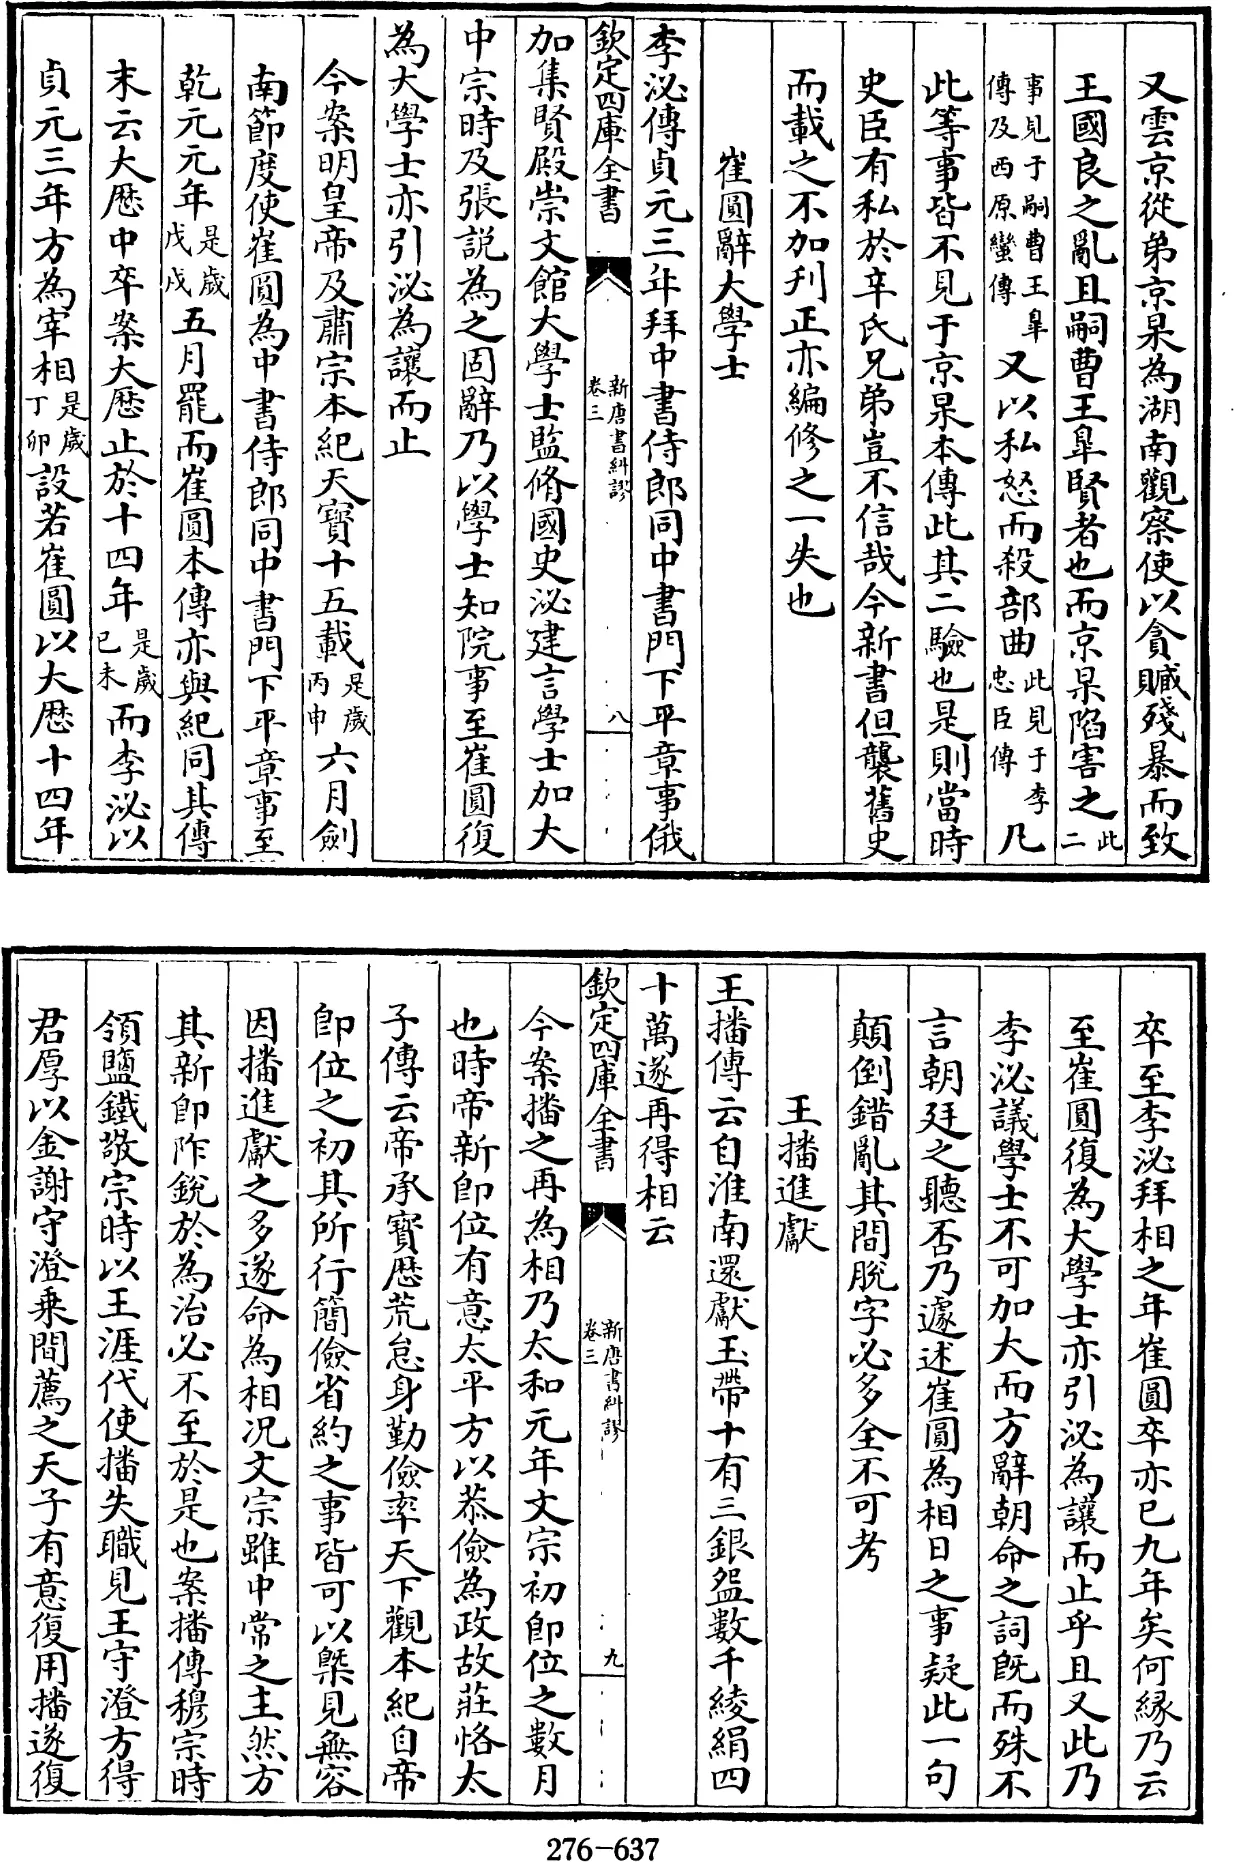 又雲京從弟京杲為湖南觀察使以貪贓殘暴而致
王國良之亂且嗣曹王臯賢者也而京杲陷害之此二
事見于嗣曹王臯傳及西原蠻傳又以私怒而殺部曲此見于李忠臣傳凡
此等事皆不見于京杲本傳此其二驗也是則當時
史臣有私於辛氏兄弟豈不信哉今新書但襲舊史
而載之不加刋正亦編修之一失也
崔圓辭大學士
李泌傳貞元三年拜中書侍郎同中書門下平章事俄
欽定四庫全書
新唐書糾謬
卷三
八
加集賢殿崇文館大學士監脩國史泌建言學士加大
中宗時及張説為之固辭乃以學士知院事至崔圓復
為大學士亦引泌為讓而止
今案明皇帝及肅宗本紀天寶十五載是歲丙申六月劍
南節度使崔圓為中書侍郎同中書門下平章事至
乾元元年是歲戊戌五月罷而崔圓本傳亦與紀同其傳
末云大厯中卒案大厯止於十四年是歲已未而李泌以
貞元三年方為宰相是歲丁卯設若崔圓以大厯十四年
卒至李泌拜相之年崔圓卒亦已九年矣何縁乃云
至崔圓復為大學士亦引泌為讓而止乎且又此乃
李泌議學士不可加大而方辭朝命之詞旣而殊不
言朝廷之聽否乃遽述崔圓為相日之事疑此一句
顛倒錯亂其間脫字必多全不可考
王播進獻
王播傳云自淮南還獻玉帶十有三銀盌數千綾絹四
十萬遂再得相云
欽定四庫全書
新唐書糾謬
卷三
九
今案播之再為相乃太和元年文宗初即位之數月
也時帝新即位有意太平方以恭儉為政故莊恪太
子傳云帝承寶厯荒怠身勤儉率天下觀本紀自帝
即位之初其所行簡儉省約之事皆可以槩見無容
因播進獻之多遂命為相况文宗雖中常之主然方
其新即阼銳於為治必不至於是也案播傳穆宗時
領鹽鐵敬宗時以王涯代使播失職見王守澄方得
君厚以金謝守澄乗間薦之天子有意復用播遂復
276-637